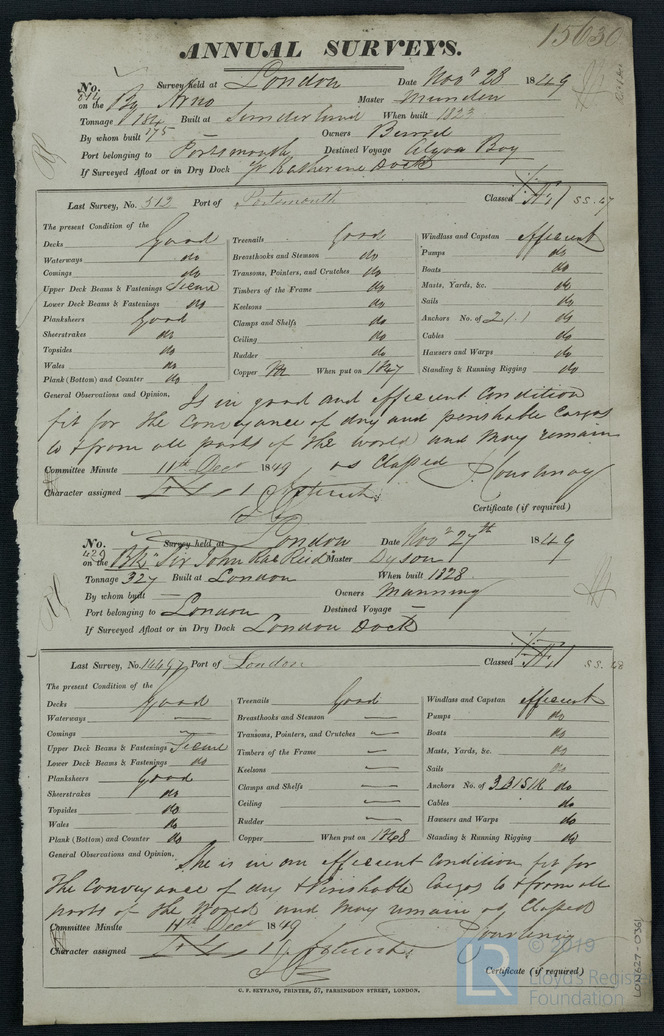 15630
ANNUAL SURVEYS.
No. Survey held at London Date Nov 28 1849
614 on the Bg Arno Master Munden
Tonnage 184 Built at Sunderland When built 1823
175
By whom built Owners Burrel
Port belonging to Portsmouth Destined Voyage Algoa Bay
If Surveyed Afloat or in Dry Dock St Katherine Dock
Last Survey, No. 513 Port of Portsmouth Classed Æ1 S.S. 47
The present Condition of the
Decks Good Treenails Good Windlass and Capstan efficient
Waterways do Breasthooks and Stemson do Pumps do
Comings do Transoms, Pointers, and Crutches do Boats do
Upper Deck Beams & Fastenings Secure Timbers of the Frame do Masts, Yards, &c. do
Lower Deck Beams & Fastenings do Keelsons do Sails do
Planksheers Good Clamps and Shelfs do Anchors No. of 2.1.1 do
Sheerstrakes do Ceiling do Cables do
Topsides do Rudder do Hawsers and Warps do
Wales do Copper When put on 1847 Standing & Running Rigging do
Plank (Bottom) and Counter do
General Observations and Opinion, Is in good and efficient Condition
fit for the Conveyance of dry and perishable Cargos
to & from all parts of the world and May remain
as Classed P. Courtenay
Committee Minute 11th Decr 1849
Character assigned
Certificate (if required)
No. Survey held at London Date Novr 27th 1849
429 on the Bk Sir John Rae Reid Master Dyson
Tonnage 327 Built at London When built 1828
By whom built — Owners Manning
Port belonging to London Destined Voyage —
If Surveyed Afloat or in Dry Dock London Dock
Last Survey, No. 14497 Port of London Classed Æ1 S.S. 48
The present Condition of the
Decks Good Treenails Good Windlass and Capstan efficient
Waterways — Breasthooks and Stemson — Pumps do
Comings — Transoms, Pointers, and Crutches — Boats do
Upper Deck Beams & Fastenings Secure Timbers of the Frame — Masts, Yards, &c. do
Lower Deck Beams & Fastenings do Keelsons — Sails do
Planksheers Good Clamps and Shelfs — Anchors No. of 3B1S1K do
Sheerstrakes do Ceiling — Cables do
Topsides do Rudder — Hawsers and Warps do
Wales do Copper When put on 1848 Standing & Running Rigging do
Plank (Bottom) and Counter do
General Observations and Opinion, She is in an efficient Condition fit for
the Conveyance of dry & Perishable Cargos to & from all
parts of the World and May remain as Classed
P Courtenay
Committee Minute 11th Decr 1849
Character assigned
Certificate (if required)
G. F. SEYFANG, PRINTER, 57, FARRINGDON STREET, LONDON.
LON627-0361
LR © 2019
Lloyd's Register
Foundation